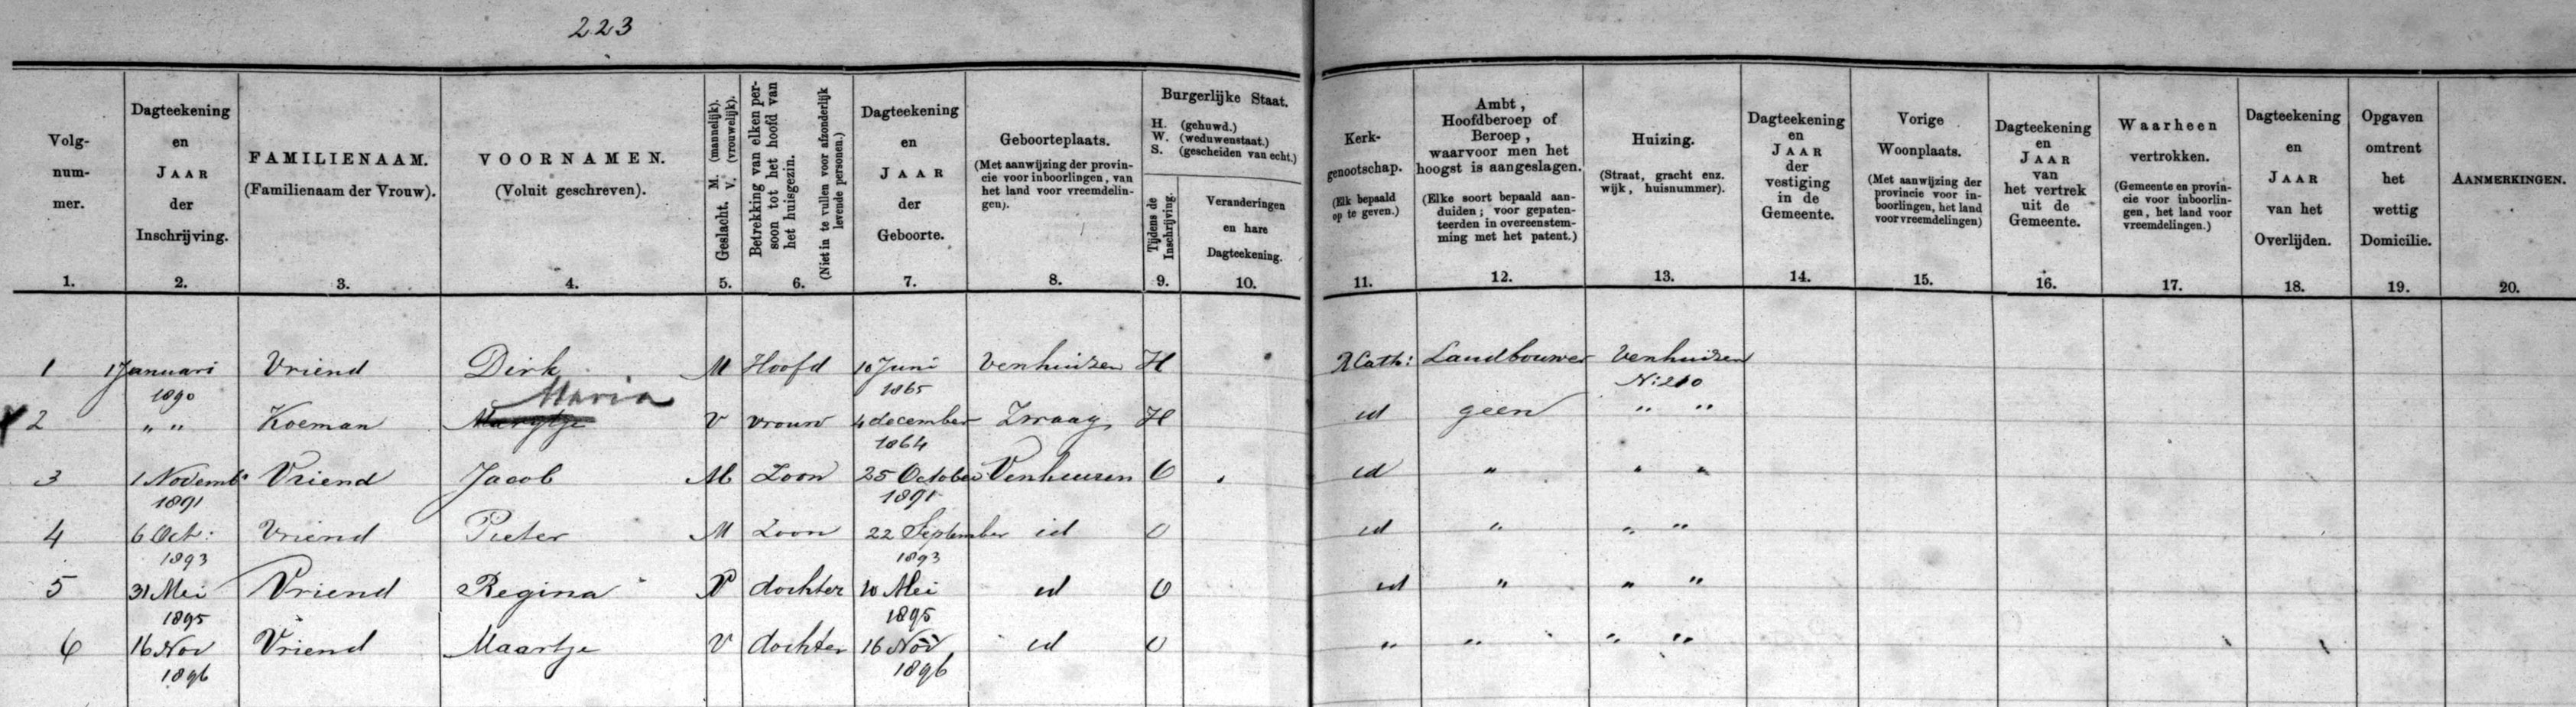 223
Volg-
num-
mer.
1.
Dagteekening
en
JAAR
der
Inschrijving.
2.
FAMILIENAAM.
(Familienaam der Vrouw).
3.
VOORNAMEN.
(Voluit geschreven).
4.
Geslacht. M. (mannelijk).
V. (vrouwelijk).
5.
Betrekking van elken per-
soon tot het hoofd van
het huisgezin.
(Niet in te vullen voor afzonderlijk
levende personen.)
6.
Dagteekening
en
JAAR
der
Geboorte.
7.
Geboorteplaats.
(Met aanwijzing der provin-
cie voor inboorlingen, van
het land voor vreemdelin-
gen).
8.
Burgerlijke Staat.
H. (gehuwd.)
W. (weduwenstaat.)
S. (gescheiden van echt.)
Tijdens de
Inschrijving.
9.
Veranderingen
en hare
Dagteekening.
10.
Kerk-
genootschap.
(Elk bepaald
op te geven.)
11.
Ambt,
Hoofdberoep of
Beroep,
waarvoor men het
hoogst is aangeslagen.
(Elke soort bepaald aan-
duiden; voor gepaten-
teerden in overeenstem-
ming met het patent.)
12.
Huizing.
(Straat, gracht enz.
wijk, huisnummer).
13.
Dagteekening
en
JAAR
der
vestiging
in de
Gemeente.
14.
Vorige
Woonplaats.
(Met aanwijzing der
provincie voor in-
boorlingen, het land
voor vreemdelingen)
15.
Dagteekening
en
JAAR
van
het vertrek
uit de
Gemeente.
16.
Waarheen
vertrokken.
(Gemeente en provin-
cie voor inboorlin-
gen, het land voor
vreemdelingen.)
17.
Dagteekening
en
JAAR
van het
Overlijden.
18.
Opgaven
omtrent
het
wettig
Domicilie.
19.
AANMERKINGEN.
20.
1 1 Januari Vriend Dirk M Hoofd 10 Juni Venhuizen H R Cath: Landbouwer Venhuizen
1890 1865 N: 210
Maria
2 " " Koeman Maartje V vrouw 4 december Zwaag H id geen " "
1864
3 1 Novemb: Vriend Jacob M Zoon 25 October Venhuizen O id " " "
1891 1891
4 6 Oct: Vriend Pieter M Zoon 22 September id O id " " "
1893 1893
5 31 Mei Vriend Regina V dochter 10 Mei id O id " " "
1895 1895
6 16 Nov Vriend Maartje V dochter 16 Nov id O " " " "
1896 1896